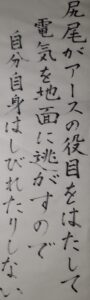 尻尾がアースの役目をはたして
電気を地面に逃がすので
自分自身はしびれたりしない